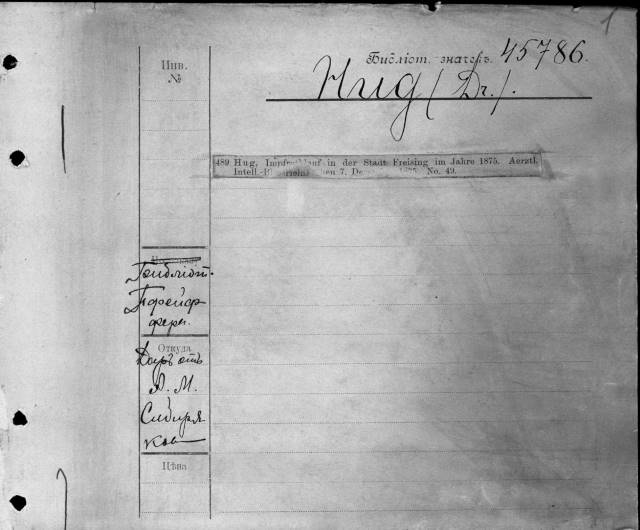 1
Инв.
№
Библіот. значекъ 45786.
Hug (Dr.).
489 Hug, in der Stadt Freising im Jahre 1875. Aerztl.
Intell. 7. No. 49.
Библіот.
Пфейф
фера.
Откуда
Даръ отъ
А. М.
Сибиря
кова
Цѣна